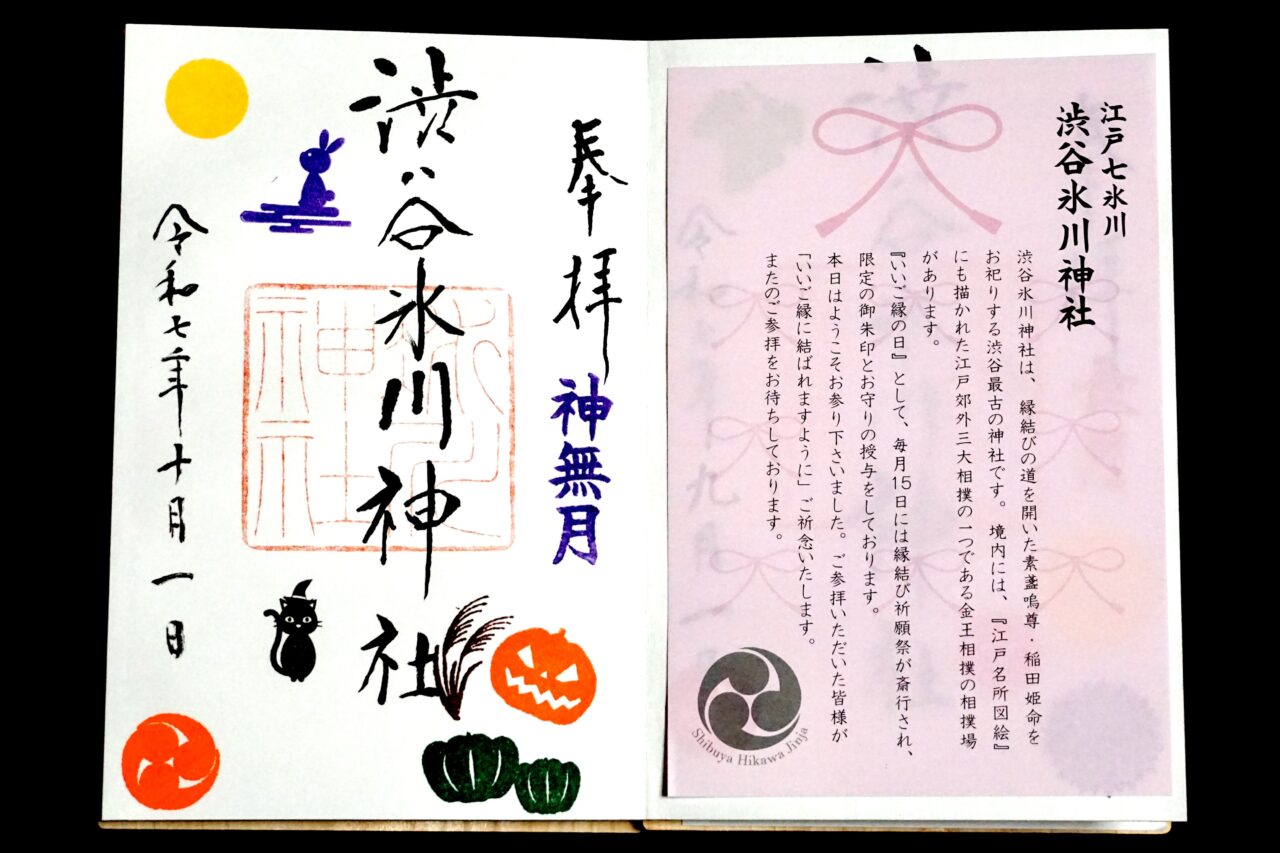 江戸七氷川
渋谷氷川神社
渋谷氷川神社は、縁結びの道を開いた素盞嗚尊・稲田姫命を
お祀りする渋谷最古の神社です。境内には、『江戸名所図絵』
にも描かれた江戸郊外三大相撲の一つである金王相撲の相撲場
があります。
『いいご縁の日』として、毎月15日には縁結び祈願祭が斎行され、
限定の御朱印とお守りの授与をしております。
本日はようこそお参り下さいました。ご参拝いただいた皆様が
「いいご縁に結ばれますように」ご祈念いたします。
またのご参拝をお待ちしております。
Shibuya Hikawa Jinja
奉拝
神無月
渋谷氷川神社
令和七年十月一日